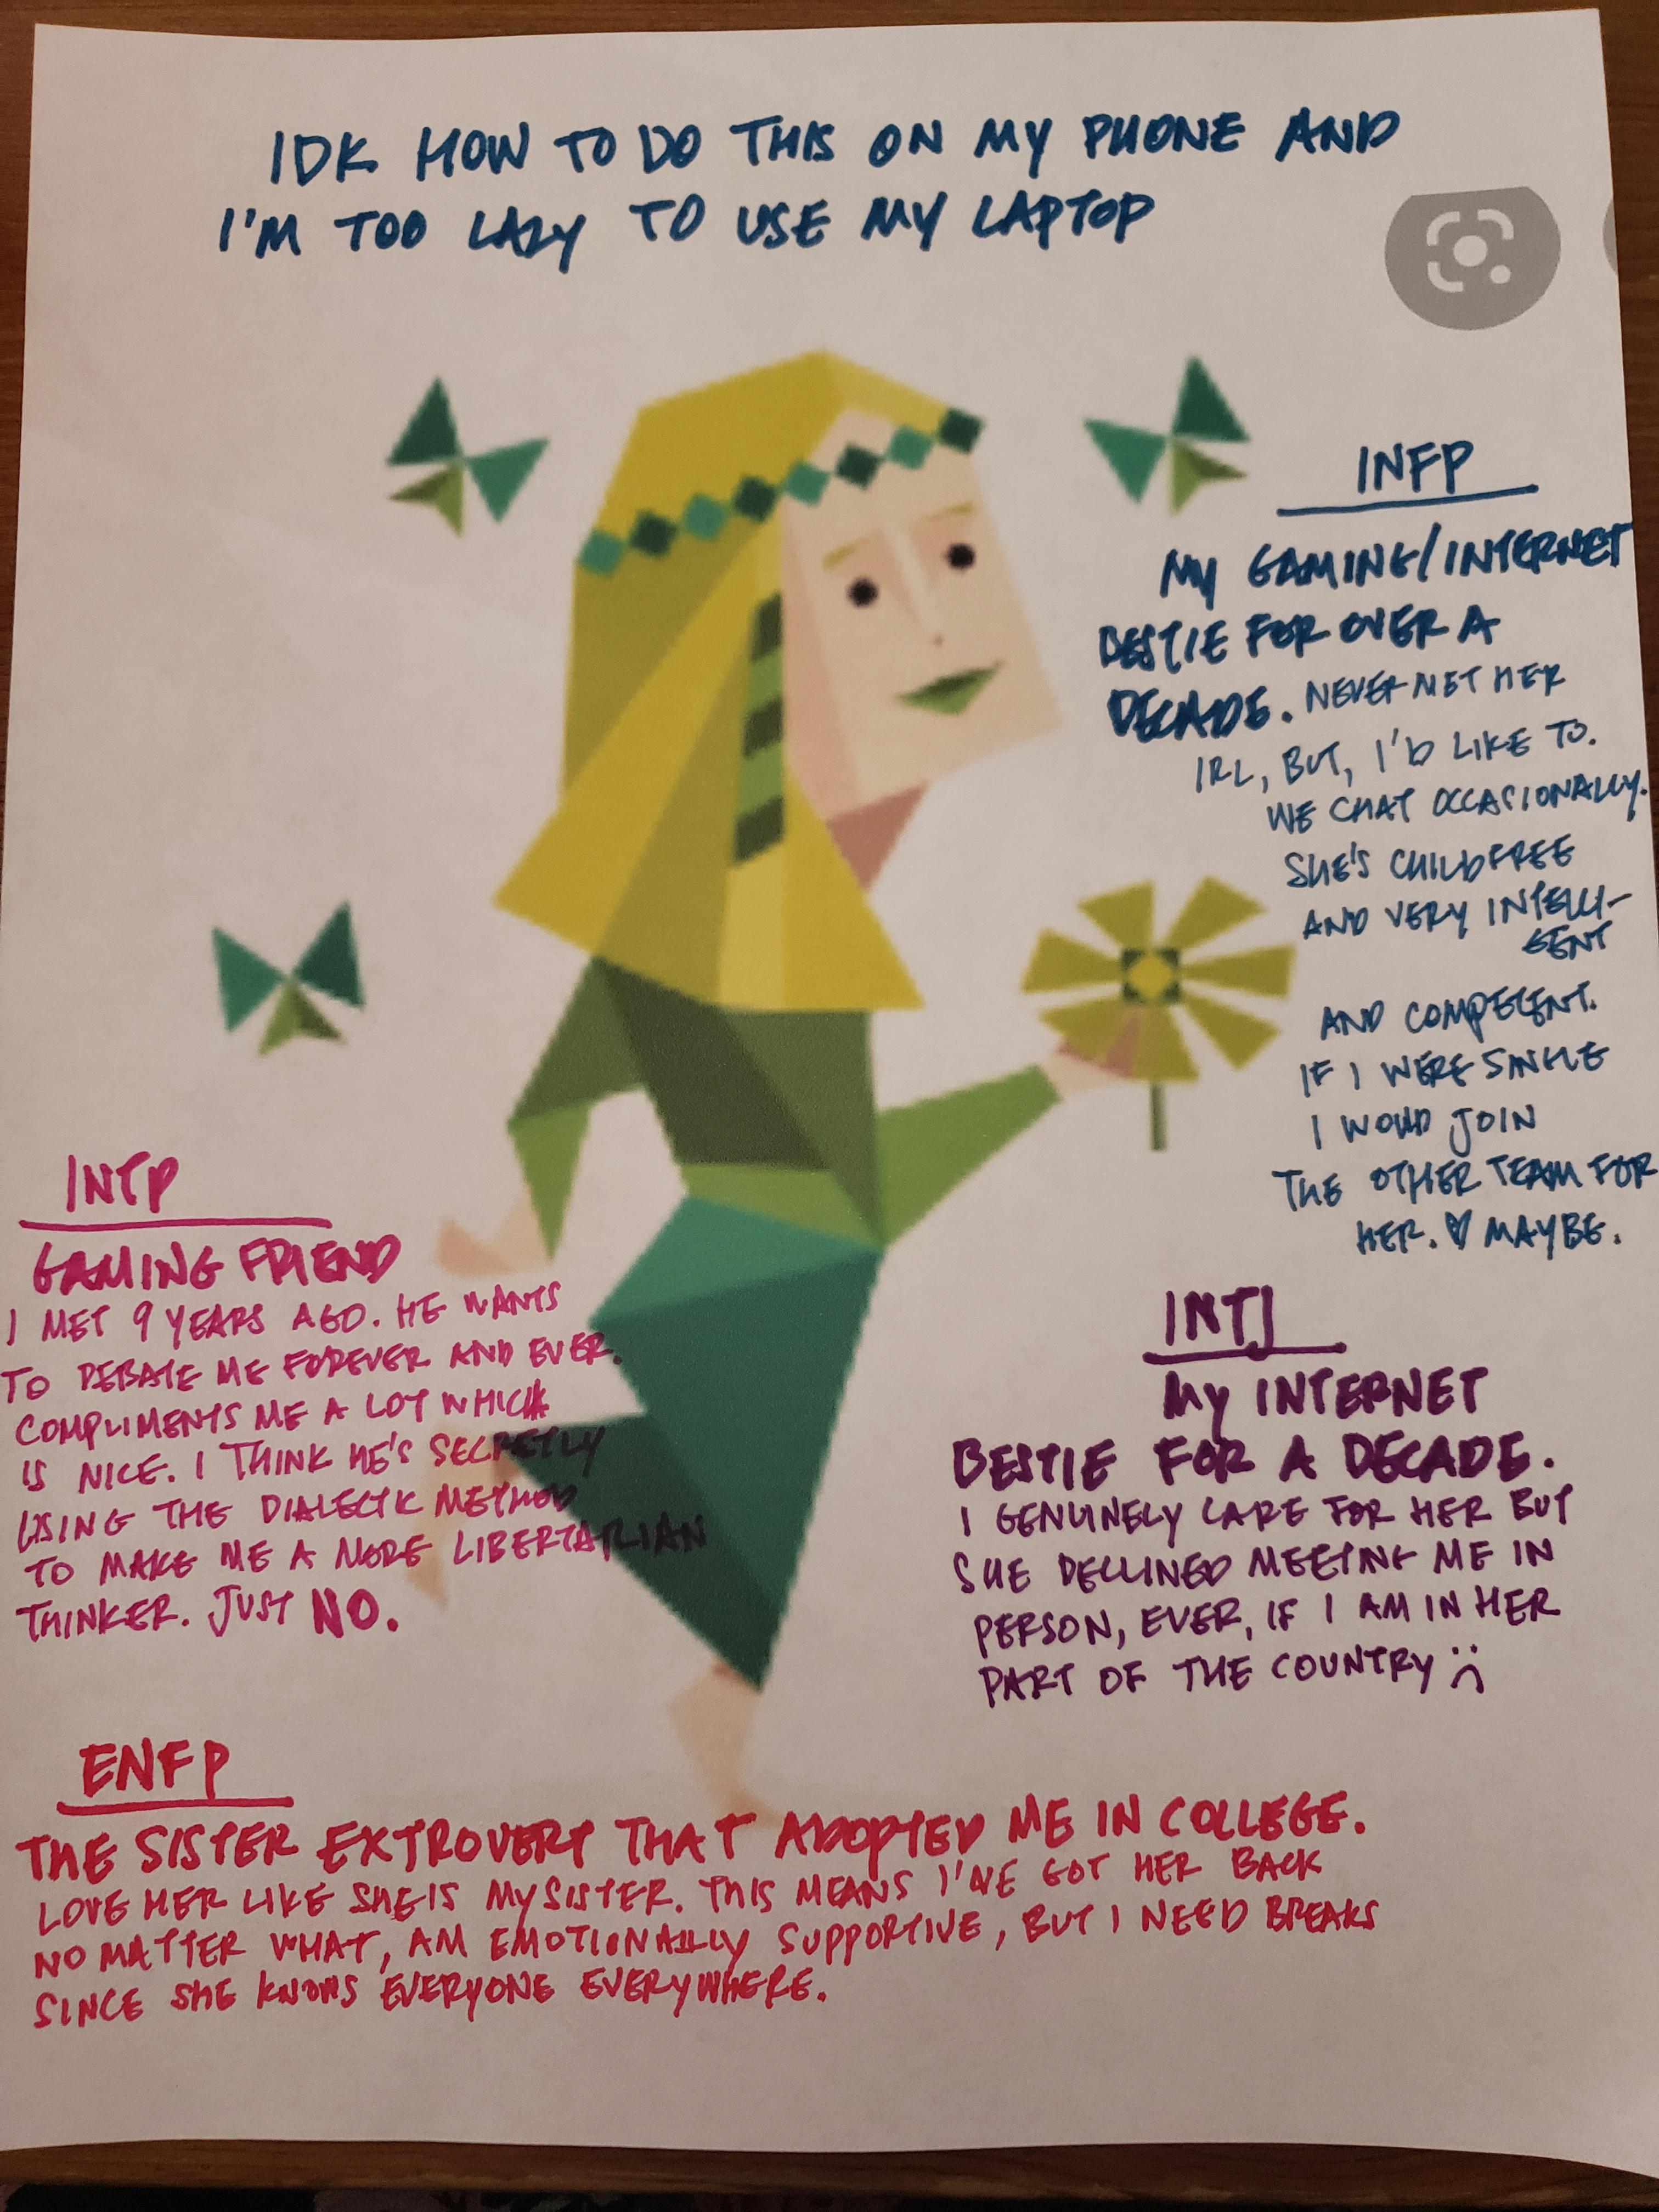 IDK HOW TO DO THIS ON MY PHONE AND
I'M TOO LAZY TO USE MY LAPTOP
INFP
MY GAMING/INTERNET
BESTIE FOR OVER A
DECADE. NEVER MET HER
IRL, BUT, I'D LIKE TO.
WE CHAT OCCASIONALLY.
SHE'S CHILDFREE
AND VERY INTELLI-
GENT
AND COMPETENT.
IF I WERE SINGLE
I WOULD JOIN
THE OTHER TEAM FOR
HER. ♥ MAYBE.
INTP
GAMING FRIEND
I MET 9 YEARS AGO. HE WANTS
TO DEBATE ME FOREVER AND EVER.
COMPLIMENTS ME A LOT WHICH
IS NICE. I THINK HE'S SECRETLY
USING THE DIALECTIC METHOD
TO MAKE ME A MORE LIBERTARIAN
THINKER. JUST NO.
INTJ
MY INTERNET
BESTIE FOR A DECADE.
I GENUINELY CARE FOR HER BUT
SHE DECLINED MEETING ME IN
PERSON, EVER, IF I AM IN HER
PART OF THE COUNTRY :(
ENFP
THE SISTER EXTROVERT THAT ADOPTED ME IN COLLEGE.
LOVE HER LIKE SHE IS MY SISTER. THIS MEANS I'VE GOT HER BACK
NO MATTER WHAT, AM EMOTIONALLY SUPPORTIVE, BUT I NEED BREAKS
SINCE SHE KNOWS EVERYONE EVERYWHERE.